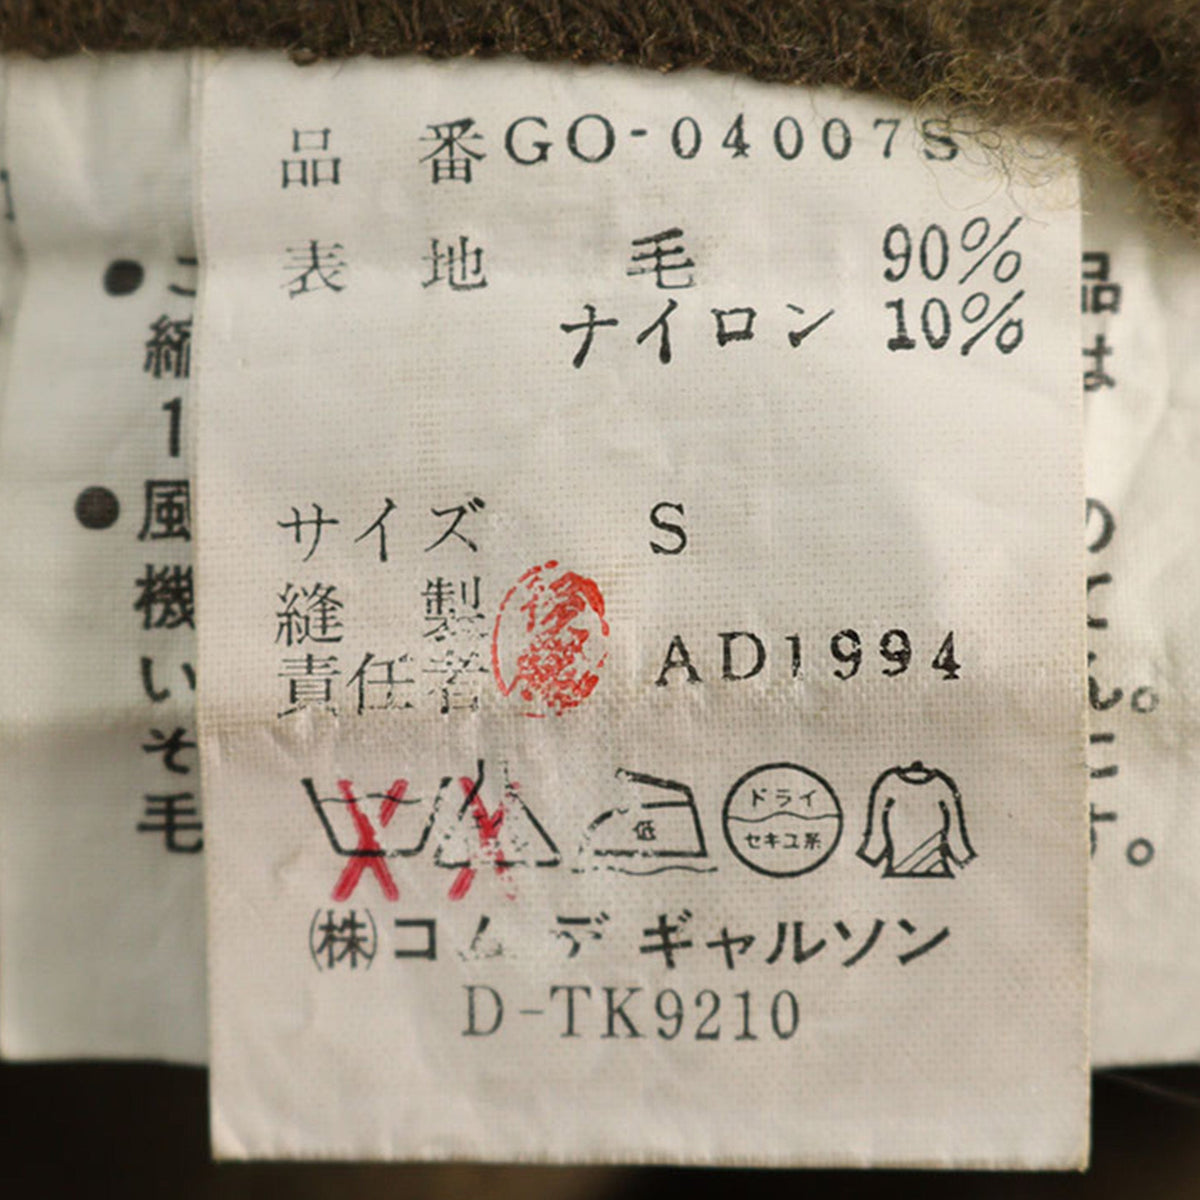 品 番 GO-04007S
表 地 毛 90%
ナイロン 10%
サイズ S
縫 製
責任者 AD1994
低
ドライ
セキユ系
㈱コム デ ギャルソン
D-TK9210
● こ
縮
1
● 風
機
い
そ
毛
品
は
の
て
ん。
に
す。